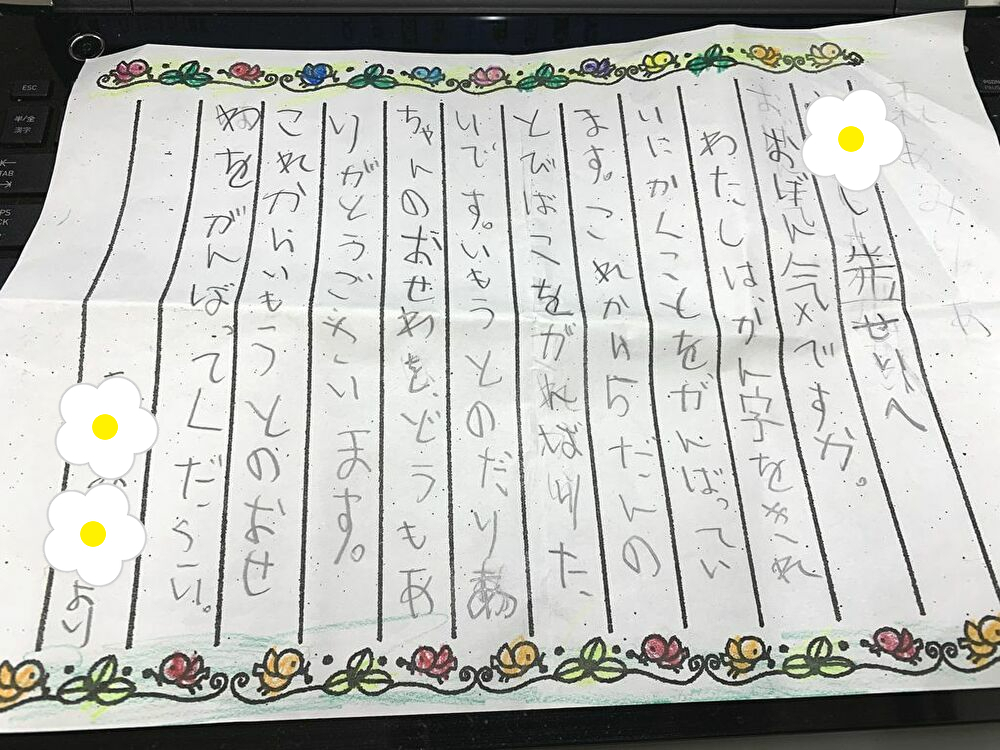 し せいへ
おぼん気メですか。
わたしはかん字をきれ
いにかくことをがんばってい
ます。これから5だんの
とびばこをがればりた
いです。いもうとのだり
ちゃんのおせわを、どうもあ
りがとうございます。
これからいもうとのおせ
わをがんばってください。
より
ESC
半/全
漢字
TAB